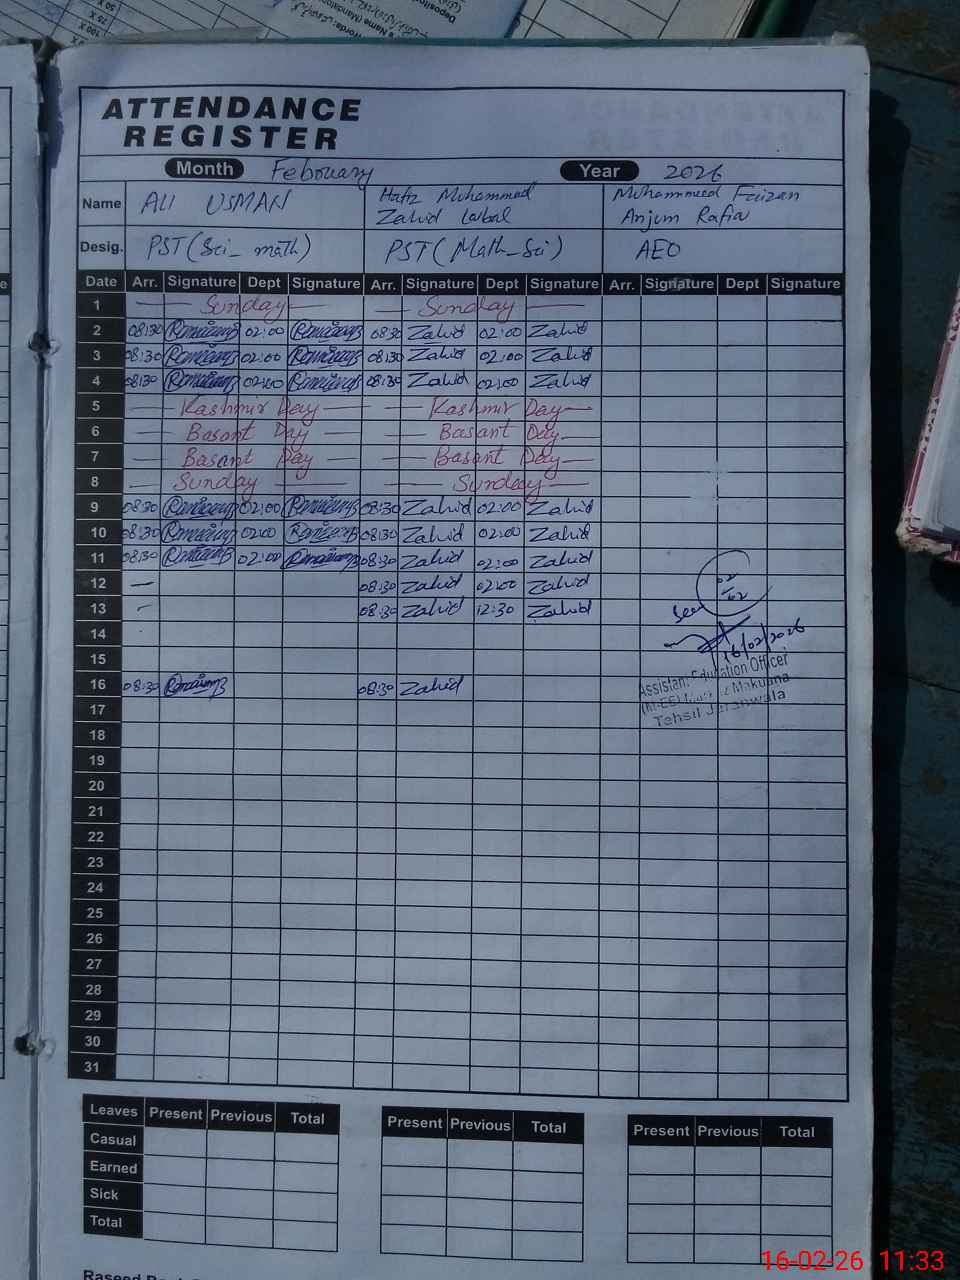 ATTENDANCE
REGISTER
Month Febouary Year 2026
Name Ali USMAN Hafiz Muhammad Zahid Muhammad Faizan Anjum
Desig. PST (Sci_ math) PST (Math_Sci) AEO
Date Arr. Signature Dept Signature Arr. Signature Dept Signature Arr. Signature Dept Signature
1 Sunday Sunday
2 08:30 02:00 08:30 Zahid 02:00 Zahid
3 08:30 02:00 08:30 Zahid 02:00 Zahid
4 08:30 02:00 08:30 Zahid 02:00 Zahid
5 Kashmir Day Kashmir Day
6 Basant Day Basant Day
7 Basant Day Basant Day
8 Sunday Sunday
9 08:30 02:00 08:30 Zahid 02:00 Zahid
10 08:30 02:00 08:30 Zahid 02:00 Zahid
11 08:30 02:00 08:30 Zahid 02:00 Zahid
12 — 08:30 Zahid 02:00 Zahid
02
02
13 — 08:30 Zahid 12:30 Zahid
Seen
14
16/02/2026
15
Assistant Education Officer
16 08:30 08:30 Zahid
Tehsil Jaranwala
17
18
19
20
21
22
23
24
25
26
27
28
29
30
31
Leaves Present Previous Total Present Previous Total Present Previous Total
Casual
Earned
Sick
Total
16-02-26 11:33